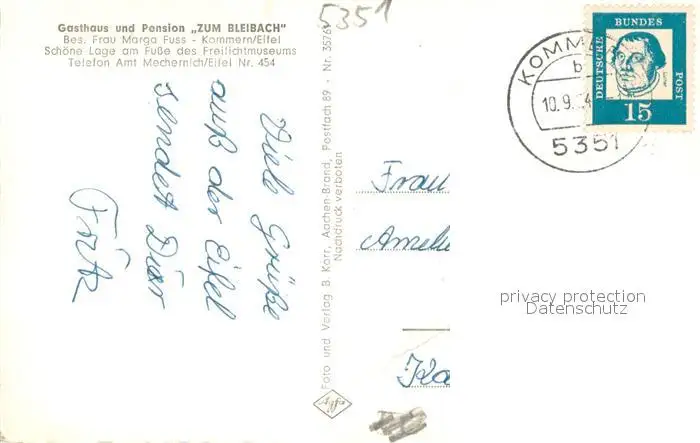 Gasthaus und Pension „ZUM BLEIBACH"
Bes. Frau Marga Fuss - Kommern/Eifel
Schöne Lage am Fuße des Freilichtmuseums
Telefon Amt Mechernich/Eifel Nr. 454
5351
Viele Grüße
auß der Eifel
sendet Dir
Fritz
Foto und Verlag B. Karr, Aachen-Brand, Postfach 89 - Nr. 3576
Nachdruck verboten
Agfa
KOMM
b
10.9. 4
5351
DEUTSCHE
BUNDES
POST
15
Frau
Ameli
Ka
privacy protection
Datenschutz